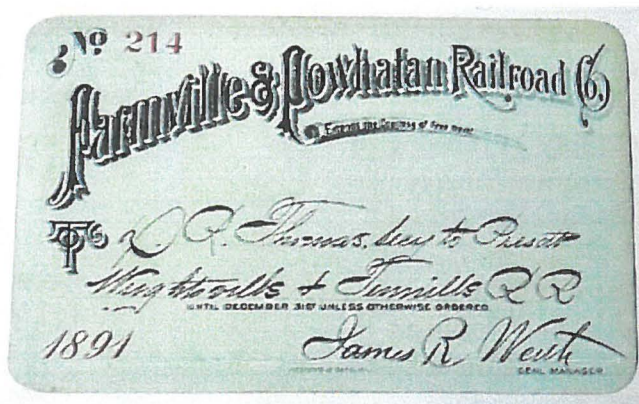 No 214
Farmville & Powhatan Railroad Co.
Extends the Courtesy of Free
To D. R. Thomas, Secy to Presdt
Wrightsville & Tennille R R
UNTIL DECEMBER 31ST UNLESS OTHERWISE ORDERED
1891 James R Werth
GENL MANAGER